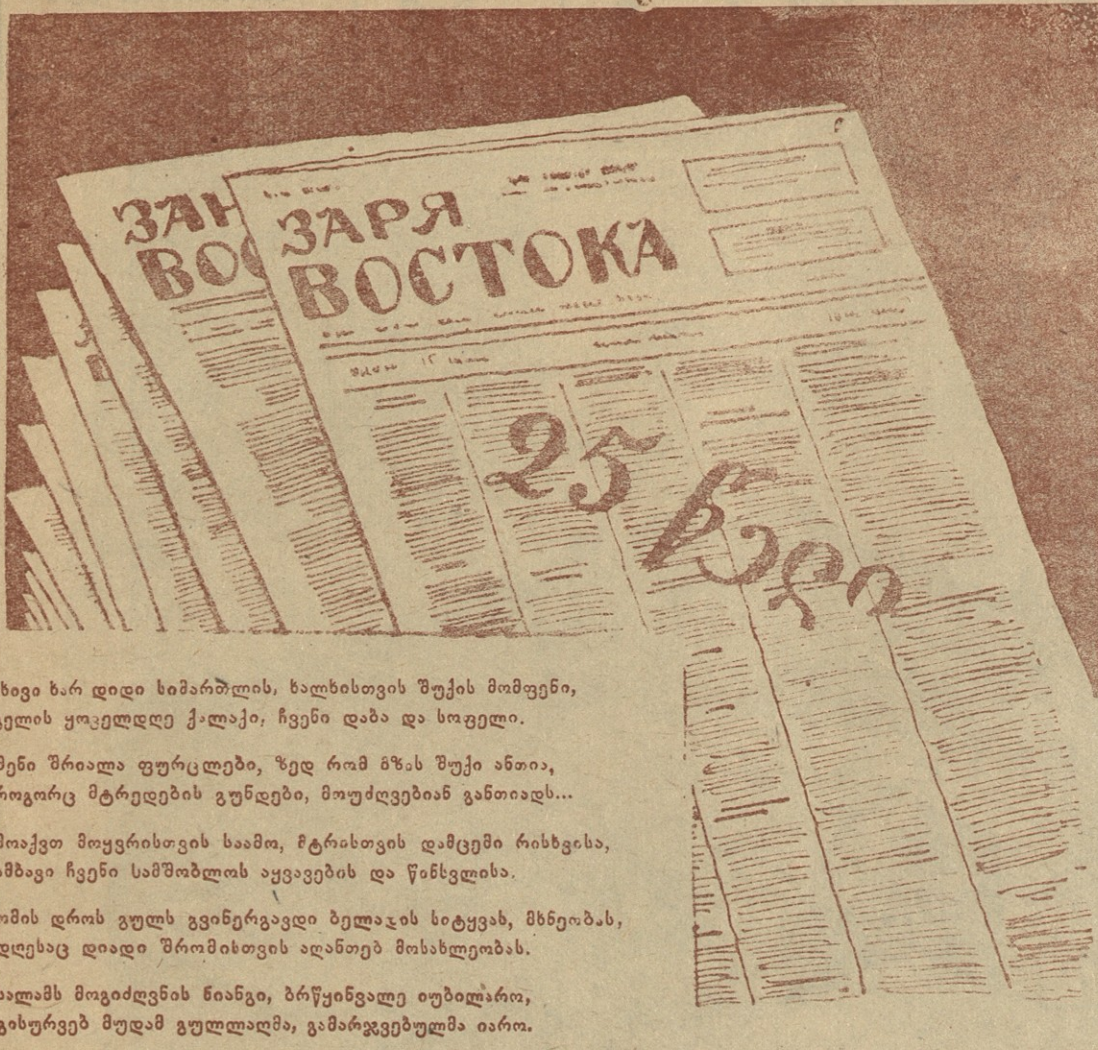 ЗАРЯ
ВОСТОКА
25 წელი
სხივი ხარ დიდი სიმართლის, ხალხისთვის შუქის მომფენი,
გელის ყოველდღე ქალაქი, ჩვენი დაბა და სოფელი.
შენი შრიალა ფურცლები, ზედ რომ მზის შუქი ანთია,
როგორც მტრედების გუნდები, მოუძღვებიან განთიადს...
მოაქვთ მოყვრისთვის საამო, მტრისთვის დამცემი რისხვისა,
ამბავი ჩვენი სამშობლოს აყვავების და წინსვლისა.
ომის დროს გულს გვინერგავდი ბელადის სიტყვას, მხნეობას,
დღესაც დიადი შრომისთვის აღანთებ მოსახლეობას.
სალამს მოგიძღვნის ნიანგი, ბრწყინვალე იუბილარო,
გისურვებ მუდამ გულლაღმა, გამარჯვებულმა იარო.